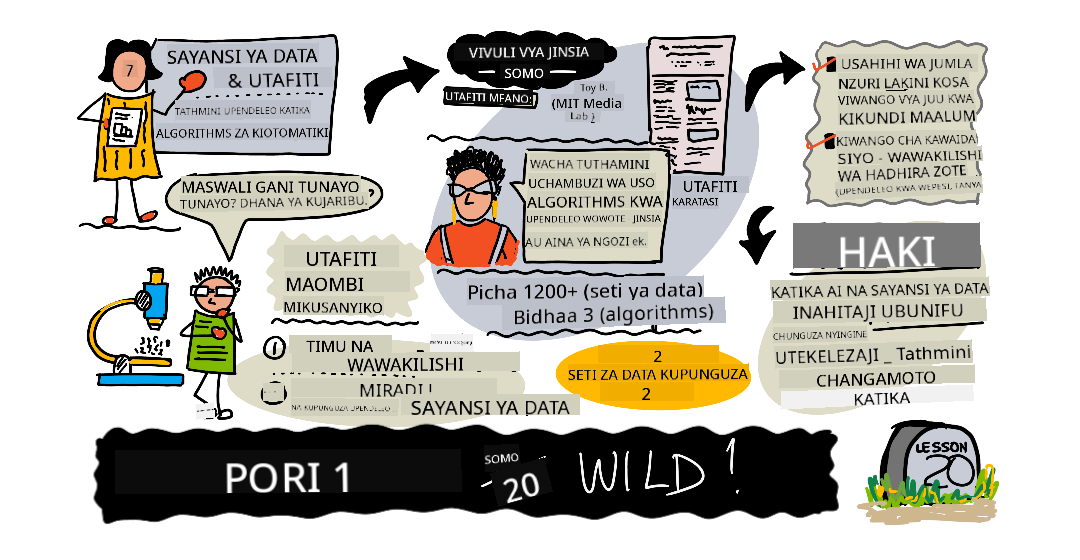 7
SAYANSI YA DATA
& UTAFITI
TATHMINI UPENDELEO KATIKA
ALGORITHMS ZA KIOTOMATIKI
MASWALI GANI TUNAYO
TUNAYO? DHANA YA KUJARIBU.
?
UTAFITI
MAOMBI
MIKUSANYIKO
1 TIMU NA
WAWAKILISHI
MIRADI
NA KUPUNGUZA UPENDELEO
SAYANSI YA DATA
VIVULI VYA JINSIA
SOMO
UTAFITI MFANO:
Toy B.
(MIT Media
Lab)
WACHA TUTHAMINI
UCHAMBUZI WA USO
ALGORITHMS KWA
UPENDELEO WOWOTE JINSIA
AU AINA YA NGOZI ek.
UTAFITI
KARATASI
Picha 1200+ (seti ya data)
Bidhaa 3 (algorithms)
2
SETI ZA DATA KUPUNGUZA
2
USAHIHI WA JUMLA
NZURI LAKINI KOSA
VIWANGO VYA JUU KWA
KIKUNDI MAALUM
KIWANGO CHA KAWAIDA
SIYO - WAWAKILISHI
WA HADHIRA ZOTE
(UPENDELEO KWA WEPESI, TANYA
HAKI
KATIKA AI NA SAYANSI YA DATA
INAHITAJI UBUNIFU
CHUNGUZA NYINGINE
UTEKELEZAJI _ Tathmini
CHANGAMOTO
KATIKA
PORI 1
SOMO
- 20
WILD!
LESSON
20